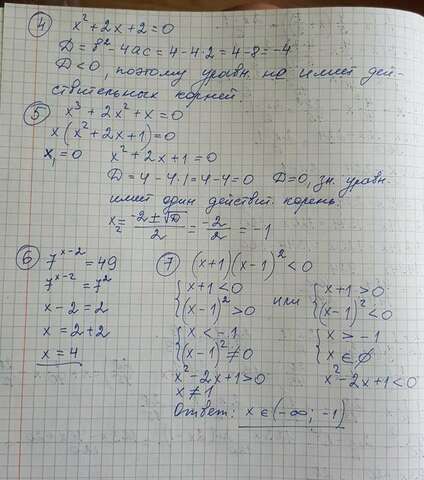 ④ x² + 2x + 2 = 0
D = b² - 4ac = 4 - 4·2 = 4 - 8 = -4
D < 0, поэтому уравн. не имеет дей-
ствительных корней.
⑤ x³ + 2x² + x = 0
x(x² + 2x + 1) = 0
x₁ = 0 x² + 2x + 1 = 0
D = 4 - 4·1 = 4 - 4 = 0 D = 0, зн. уравн.
имеет один действит. корень.
x₂ = (-2 ± √D)/2 = -2/2 = -1
⑥ 7ˣ⁻² = 49
7ˣ⁻² = 7²
x - 2 = 2
x = 2 + 2
x = 4
⑦ (x+1)(x-1)² < 0
{ x + 1 < 0 или { x + 1 > 0
{ (x-1)² > 0 { (x-1)² < 0
{ x < -1 { x > -1
{ (x-1)² ≠ 0 { x ∈ ∅
x² - 2x + 1 > 0 x² - 2x + 1 < 0
x ≠ 1
Ответ: x ∈ (-∞; -1)